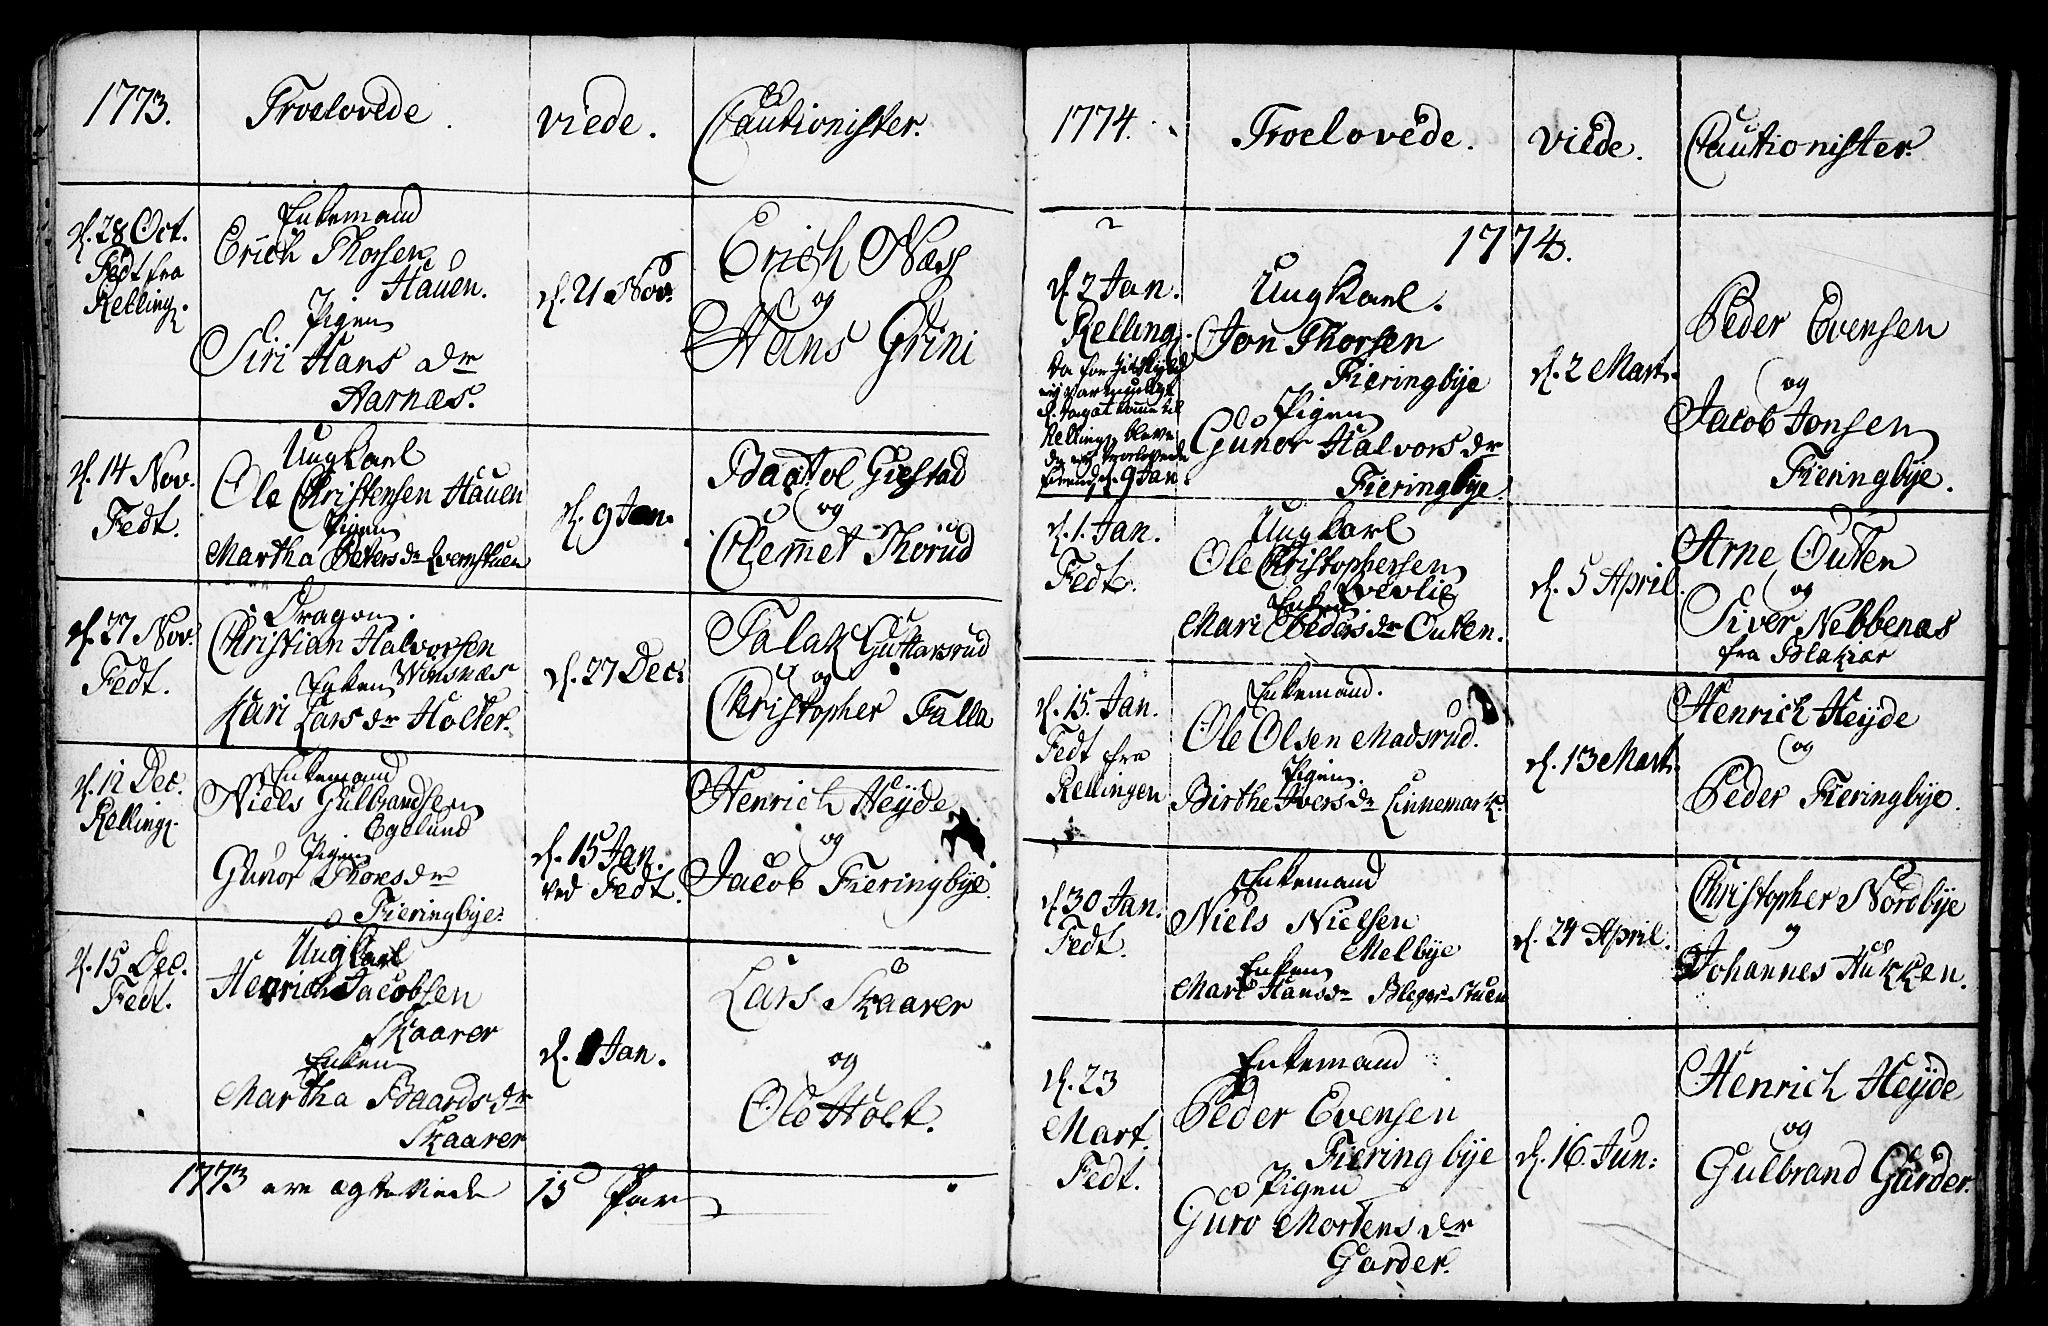 1773.
Troelovede.
viede.
Cautionister.
d. 28 Oct.
Fedt fra
Relling.
Enkemand
Erich Thorsen
Hauen.
Pigen
Siri Hans dr
Aarnæs.
d. 21 Nov.
Erich Næss
og
Hans Grini
d. 14 Nov.
Fedt.
Ungkarl
Ole Christensen Hauen
Pigen
Martha Peters dr Qvernstuen
d. 9 Jan.
Baartol Giestad
og
Clemet Thorud
d. 27 Nov.
Fedt.
Dragon.
Christian Halvorsen
Winsnæs
Enken
Kari Lars dr Holter.
d. 27 Dec:
Falak Guttarsrud
og
Christopher Falla
d. 12 Dec.
Relling.
Enkemand
Niels Gulbrandsen
Ogelund
Pigen
Gunor Thores dr
Fieringbye.
d. 15 Jan.
ved Fedt.
Henrich Heyde
og
Jacob Fieringbye.
d. 15 Dec.
Fedt.
Ungkarl
Henrich Jacobsen
Skaarer
Enken
Martha Baards dr
Skaarer
d. 1 Jan.
Lars Skaarer
og
Ole Holt.
1773 ere ægteviede 15 Par
1774.
Troelovede.
viede.
Cautionister.
1774.
d. 2 Jan.
Relling.
da for
ey var mueligt
d. dag at komme til
Relling, bleve
de troelovede
d. 9 Jan.
Ungkarl.
Jon Thorsen
Fieringbye
Pigen
Gunor Halvors dr
Fieringbye.
d. 2 Mart.
Peder Evensen
og
Jacob Jonsen
Fieringbye.
d. 1. Jan.
Fedt.
Ungkarl
Ole Christophersen
Qvevlie
Enken
Mari Peders dr Outen.
d. 5 April.
Arne Outen
og
Siver Nebbenæs
fra Blakiær
d. 15. Jan.
Fedt fra
Rellingen
Enkemand.
Ole Olsen Madsrud.
Pigen.
Birthe Ivers dr Linnemark.
d. 13 Mart.
Henrich Heyde
og
Peder Fieringbye.
d. 30 Jan.
Fedt.
Enkemand
Niels Nielsen
Melbye
Enken
Mari Hans dr Bleger Stuen
d. 24 April.
Christopher Nordbye
og
Johannes Hukken.
d. 23
Mart.
Fedt.
Enkemand
Peder Evensen
Fieringbye
Pigen
Guro Mortens dr
Garder.
d. 16. Jun:
Henrich Heyde
og
Gulbrand Garder.